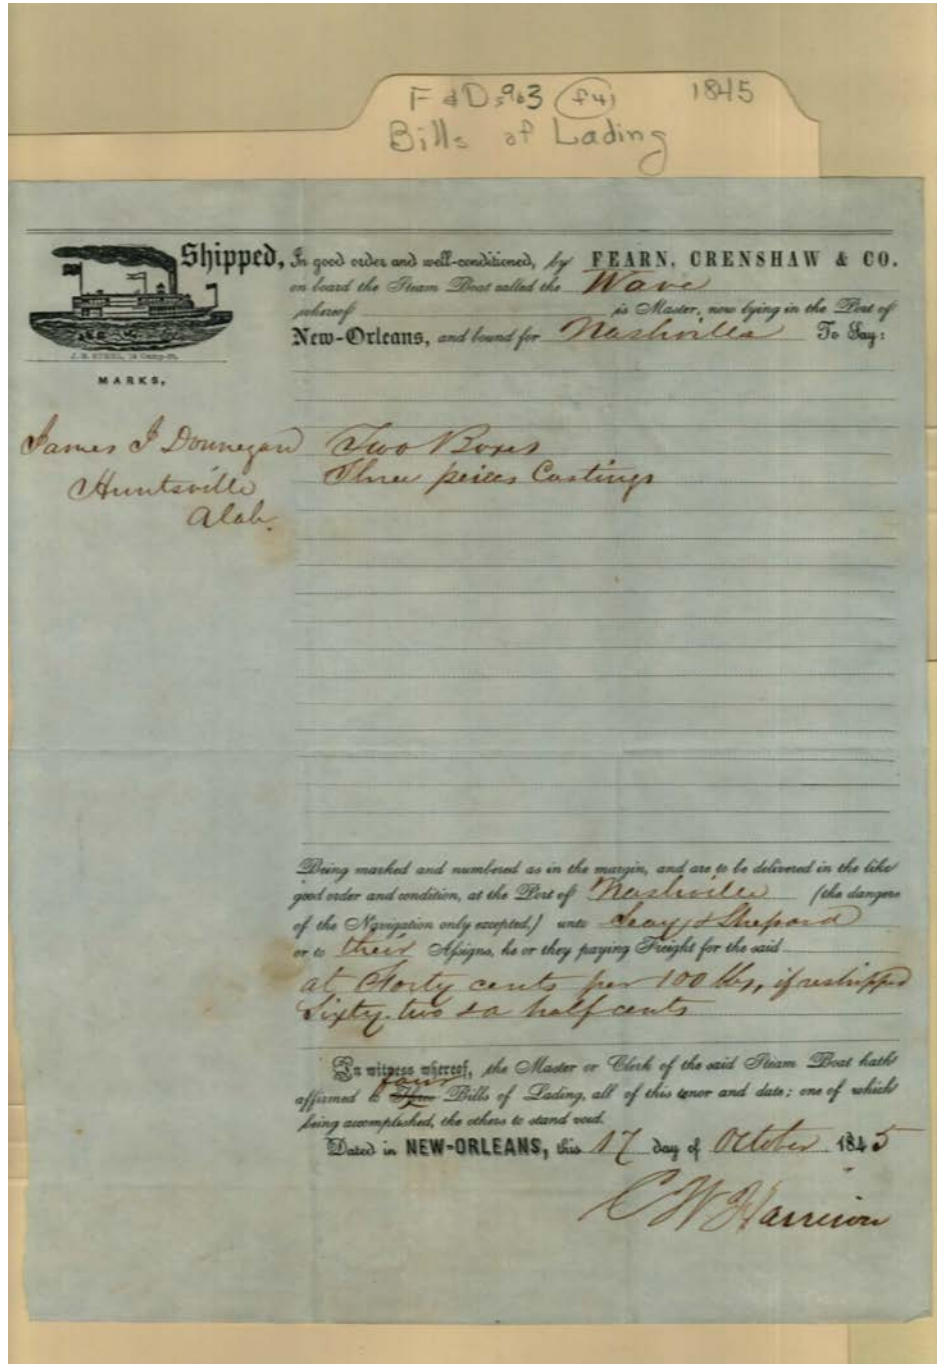 F & D 963 (f4) 1845
Bills of Lading
Shipped, In good order and well-conditioned, by FEARN, CRENSHAW & CO.
on board the Steam Boat called the Wave
whereof is Master, now lying in the Port of
New-Orleans, and bound for Nashville To Say:
MARKS,
James J Donnegan Two Boxes
Huntsville Three peices Castings
Alab.
Being marked and numbered as in the margin, and are to be delivered in the like
good order and condition, at the Port of Nashville (the dangers
of the Navigation only excepted,) unto Seay & Shepard
or to their Assigns, he or they paying Freight for the said
at Forty cents per 100 lbs, if reshipped
Sixty-two & a half cents
In witness whereof, the Master or Clerk of the said Steam Boat hath
four
affirmed to Three Bills of Lading, all of this tenor and date; one of which
being accomplished, the others to stand void.
Dated in NEW-ORLEANS, this 17 day of October 1845
C W Harrison